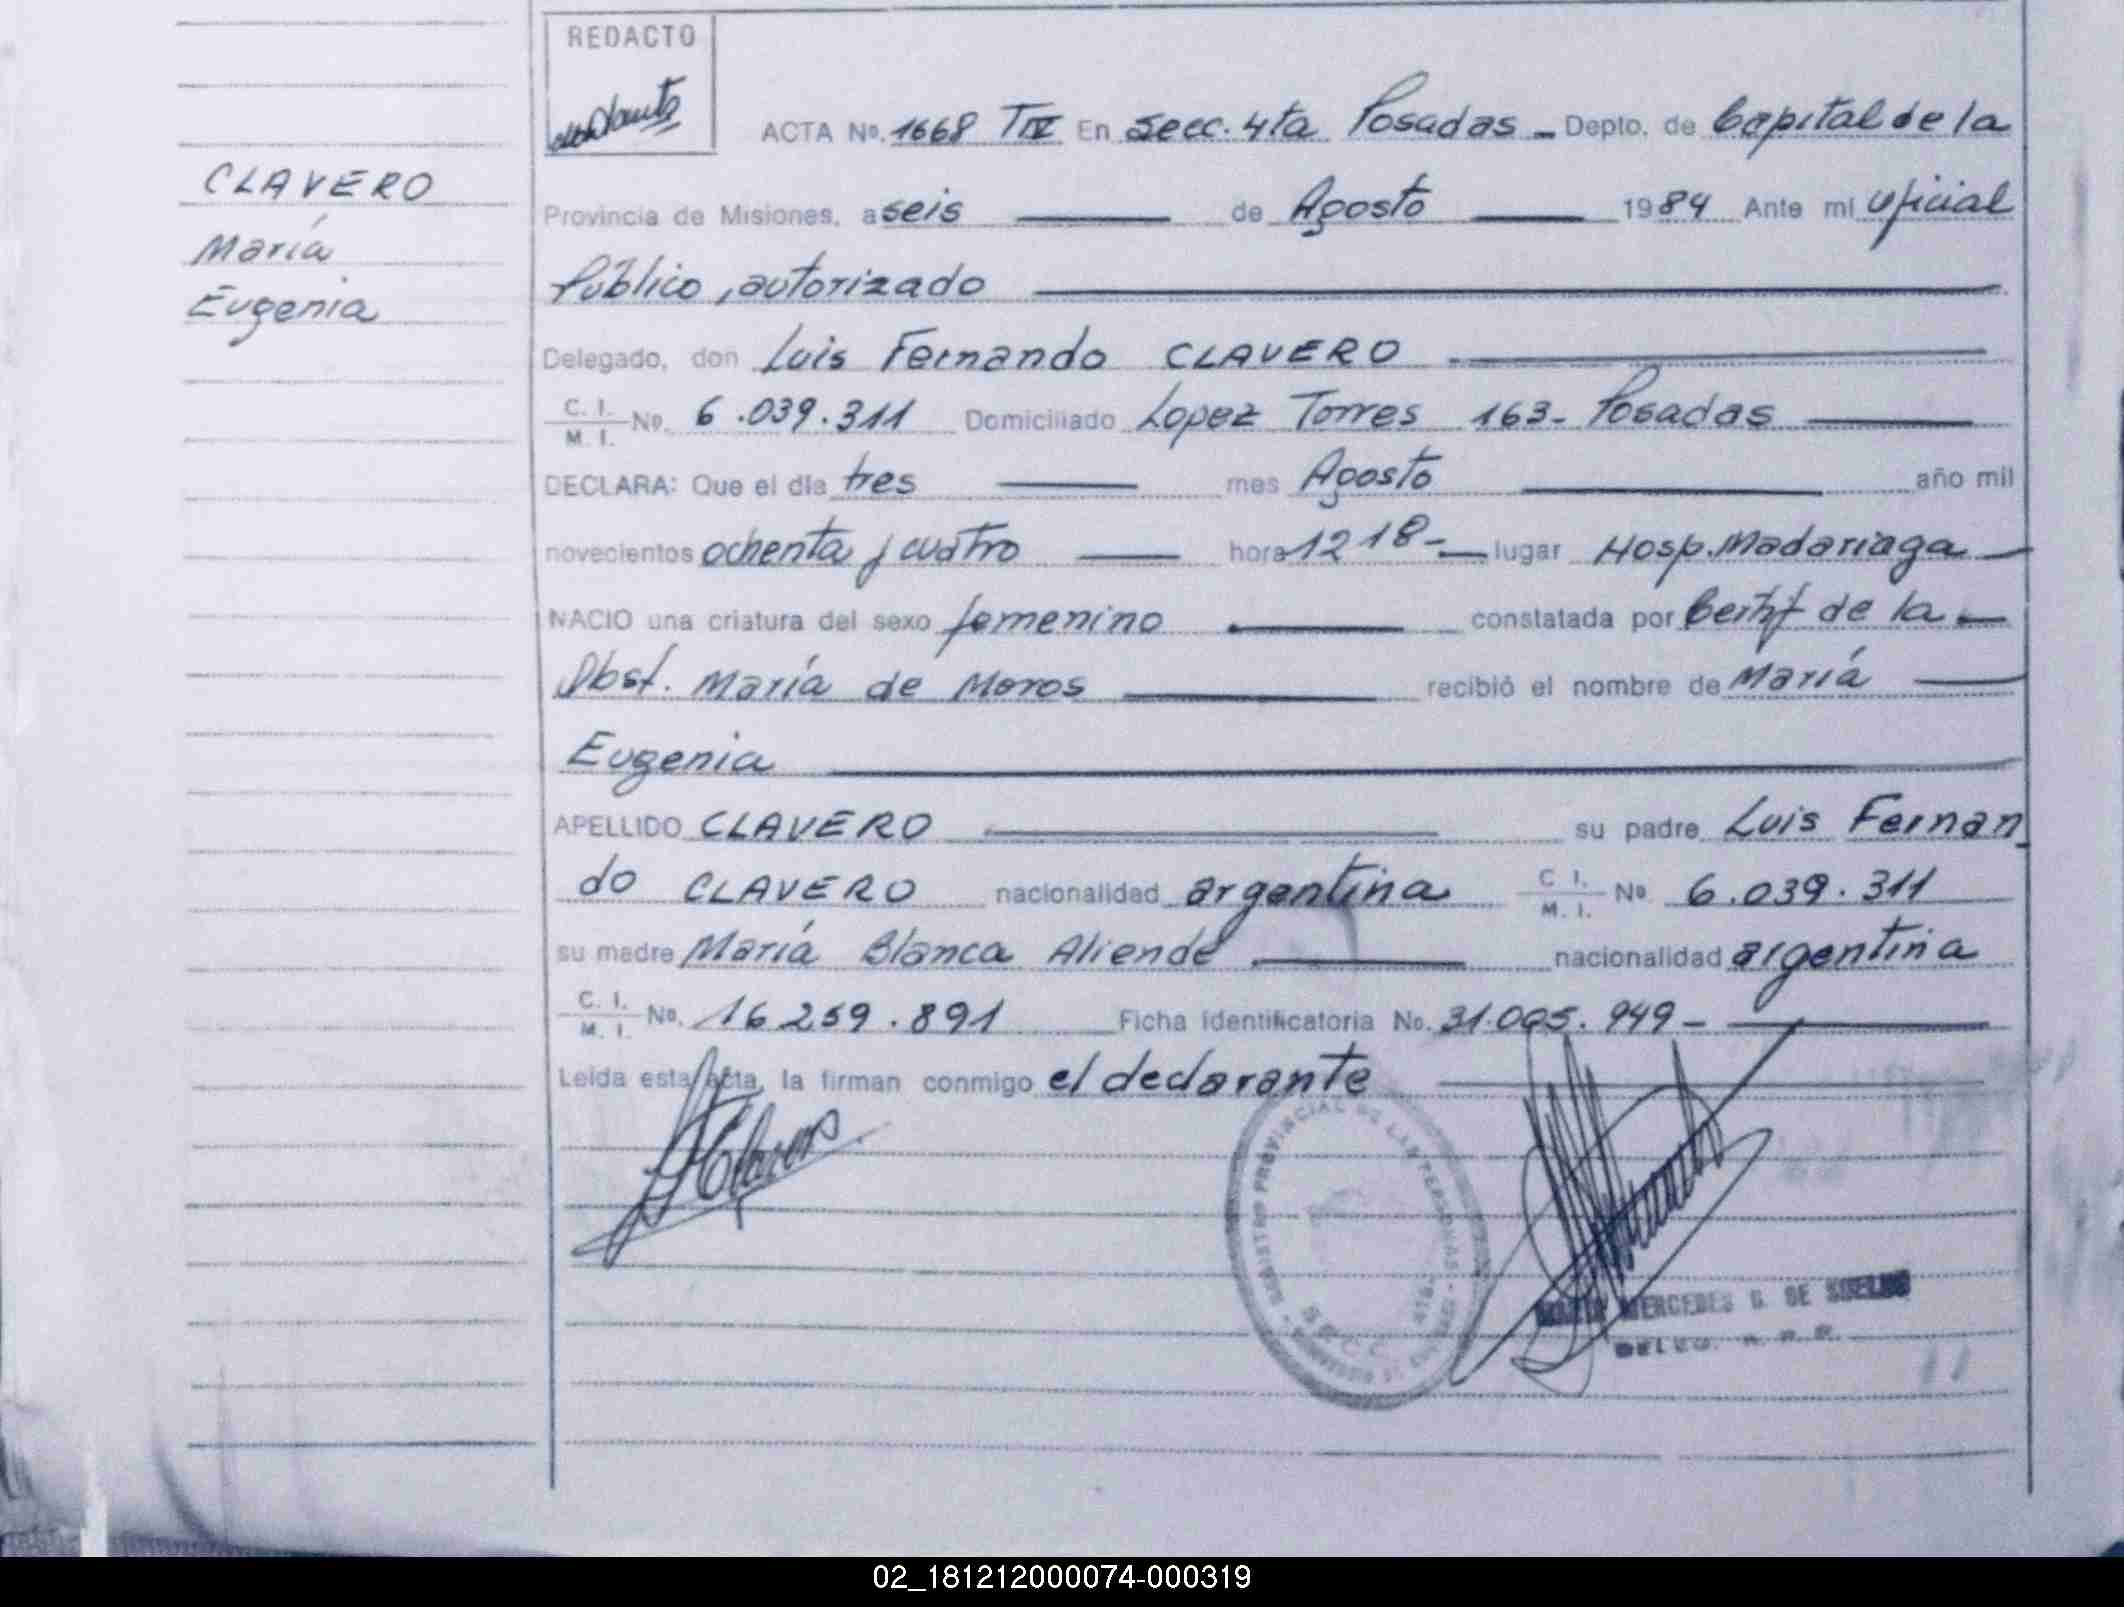 REDACTO
ACTA No. 1668 TIV En Secc. 4ta Posadas - Depto. de Capital de la
CLAVERO
María
Eugenia
Provincia de Misiones, a seis de Agosto 1984 Ante mi Oficial
Público, autorizado
Delegado, don Luis Fernando CLAVERO
C. I. M. I. No. 6.039.311 Domiciliado Lopez Torres 163- Posadas
DECLARA: Que el día tres mes Agosto año mil
novecientos ochenta y cuatro hora 12 18- lugar Hosp. Madariaga
NACIO una criatura del sexo femenino constatada por Certif de la
Obst. María de Moros recibió el nombre de María
Eugenia
APELLIDO CLAVERO su padre Luis Fernan
do CLAVERO nacionalidad argentina C. I. M. I. No 6.039.311
su madre María Blanca Aliende nacionalidad argentina
C. I. M. I. No. 16.259.891 Ficha identificatoria No. 31.005.949-
Leida esta acta, la firman conmigo el declarante
REGISTRO PROVINCIAL DE LAS PERSONAS
SECC. 4ta
MERCEDES G. DE
DELEG. R. P. P.
02_181212000074-000319